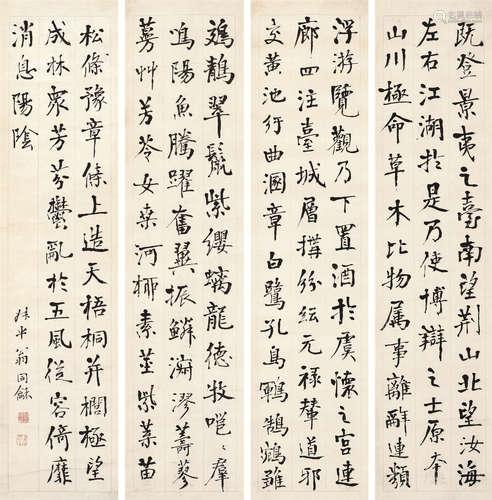 既登景夷之臺南望荆山北望汝海
左右江湖於是乃使博辯之士原本
山川極命草木比物属事離辭連類
浮游覽觀乃下置酒於虞懷之宮連
廊四注臺城層構紛紜元祿輦道邪
交黃池行曲溷章白鷺孔鳥鶤鵠鵷雛
鵁鶄翠鬣紫纓螭龍德牧嗈〻羣
鳴陽魚騰躍奮翼振鱗漃漻薵蓼
蔓艸芳苓女桑河栁素莖紫葉苗
松條豫章條上造天梧桐并櫚極望
成林眾芳芬鬱亂於五風從容猗靡
消息陽陰
叔平翁同龢